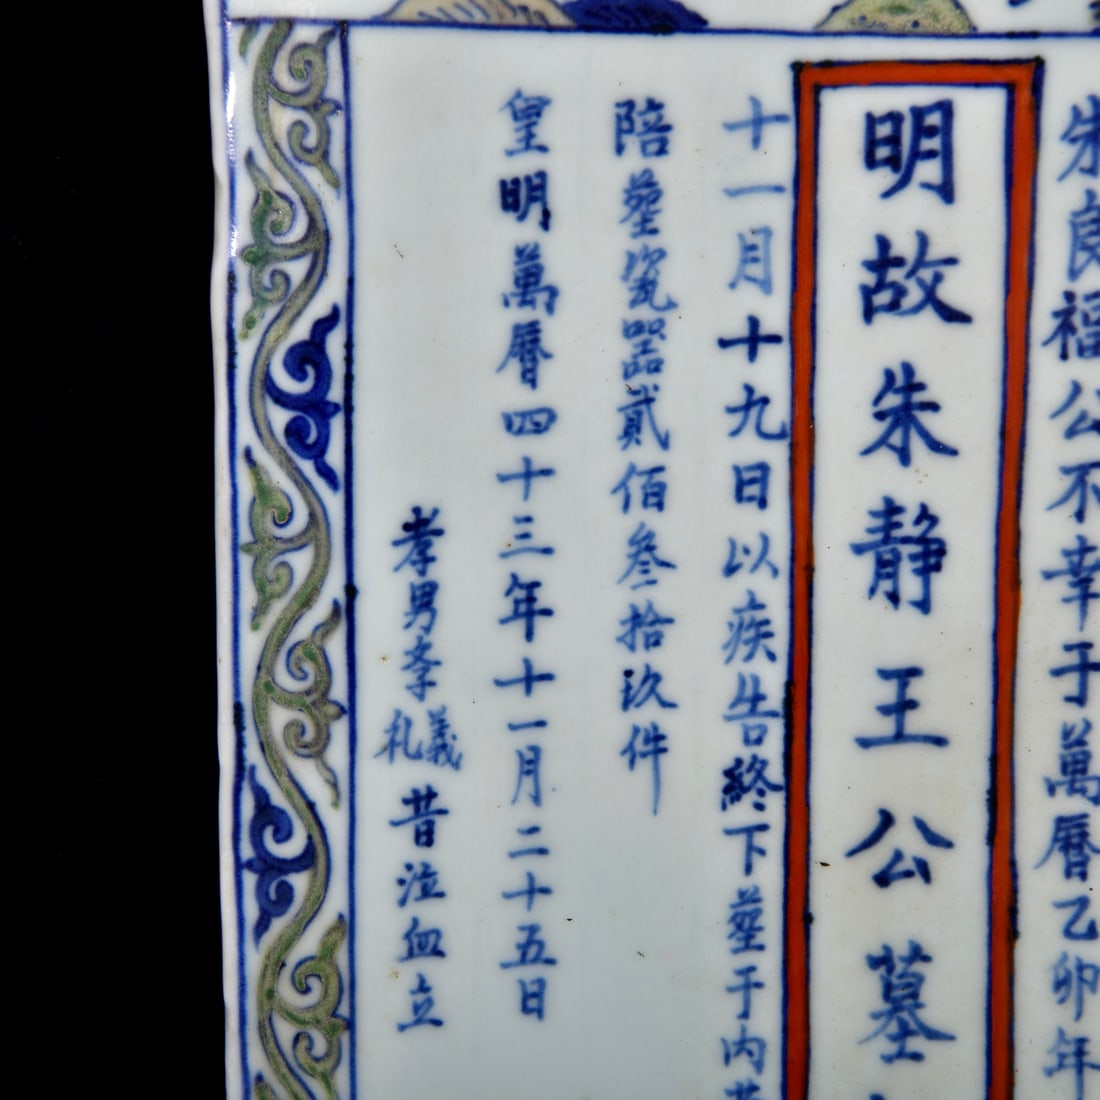 朱良福公不幸于萬曆乙卯年
明故朱静王公墓
十一月十九日以疾告終下塟于内
陪塟瓷器貳佰叁拾玖件
皇明萬曆四十三年十一月二十五日
孝男李義礼昔泣血立